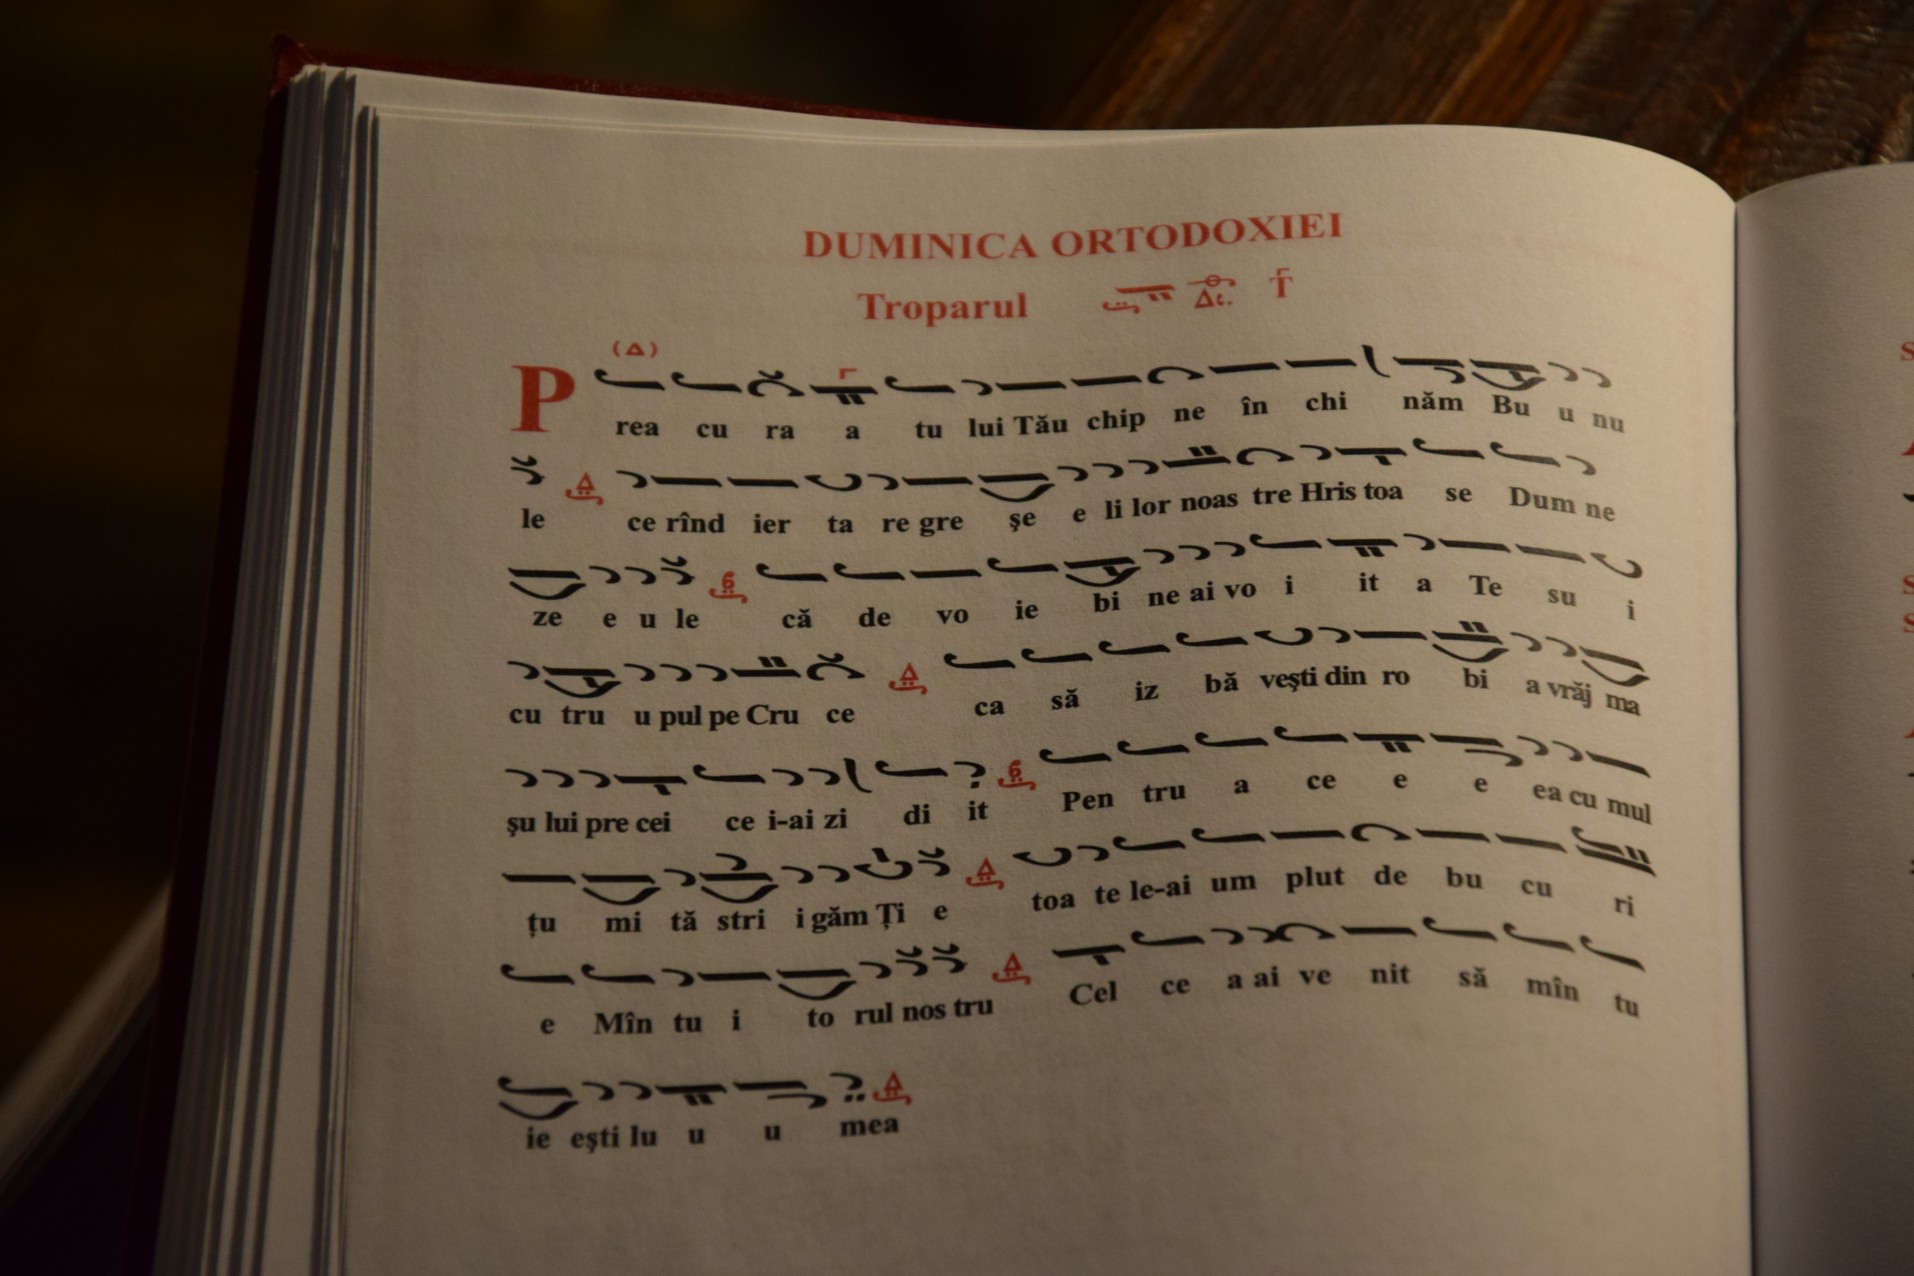 DUMINICA ORTODOXIEI
Troparul
(Δ)
P rea cu ra a tu lui Tău chip ne în chi năm Bu u nu
le ce rînd ier ta re gre șe e li lor noas tre Hris toa se Dum ne
ze e u le că de vo ie bi ne ai vo i it a Te su i
cu tru u pul pe Cru ce ca să iz bă vești din ro bi a vrăj ma
șu lui pre cei ce i-ai zi di it Pen tru a ce e e ea cu mul
țu mi tă stri i găm Ți e toa te le-ai um plut de bu cu ri
e Mîn tu i to rul nos tru Cel ce a ai ve nit să mîn tu
ie ești lu u u mea